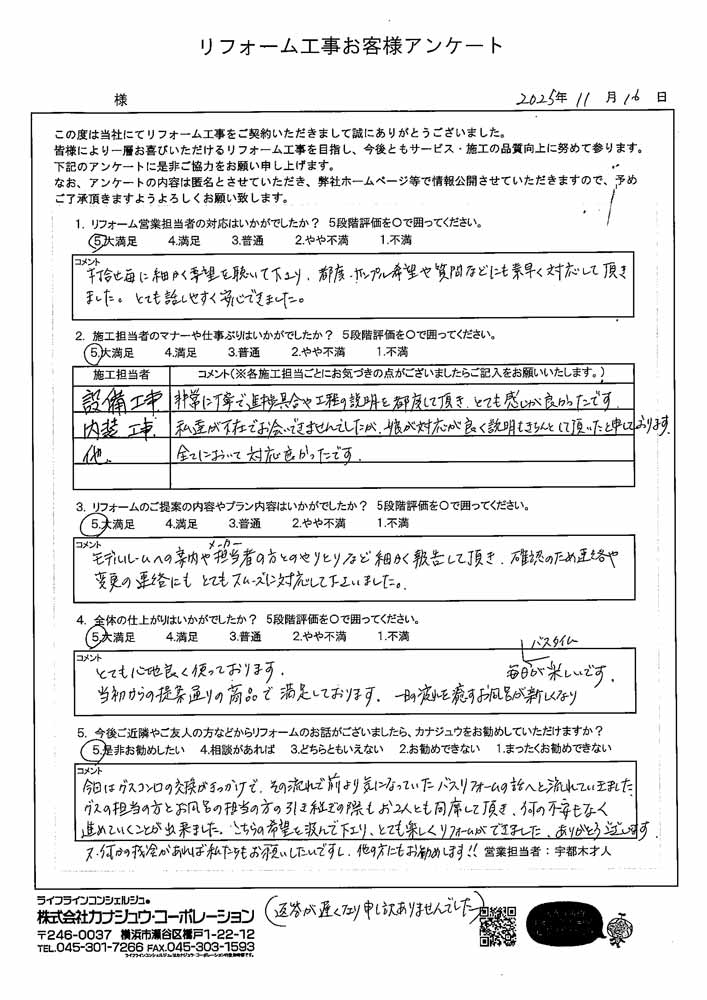 リフォーム工事お客様アンケート
様 2025年 11月 16日
この度は当社にてリフォーム工事をご契約いただきまして誠にありがとうございました。
皆様により一層お喜びいただけるリフォーム工事を目指し、今後ともサービス・施工の品質向上に努めて参ります。
下記のアンケートに是非ご協力をお願い申し上げます。
なお、アンケートの内容は匿名とさせていただき、弊社ホームページ等で情報公開させていただきますので、予め
ご了承頂きますようよろしくお願い致します。
1. リフォーム営業担当者の対応はいかがでしたか? 5段階評価を○で囲ってください。
5.大満足 4.満足 3.普通 2.やや不満 1.不満
コメント
打合せ毎に細かく希望を聴いて下さり、都度、サンプル希望や質問などにも素早く対応して頂き
ました。とても話しやすく安心できました。
2. 施工担当者のマナーや仕事ぶりはいかがでしたか? 5段階評価を○で囲ってください。
5.大満足 4.満足 3.普通 2.やや不満 1.不満
施工担当者 コメント(※各施工担当ごとにお気づきの点がございましたらご記入をお願いいたします。)
設備工事 非常に丁寧で進捗具合や工程の説明を都度して頂き、とても感じが良かったです。
内装工事 私達が不在でお会いできませんでしたが、娘が対応が良く説明もきちんとして頂いたと申しております。
他 全てにおいて対応良かったです。
3. リフォームのご提案の内容やプラン内容はいかがでしたか? 5段階評価を○で囲ってください。
5.大満足 4.満足 3.普通 2.やや不満 1.不満
コメント
メーカー
モデルルームへの案内や担当者の方とのやりとりなど細かく報告して頂き、確認のため連絡や
変更の連絡にもとてもスムーズに対応して下さいました。
4. 全体の仕上がりはいかがでしたか? 5段階評価を○で囲ってください。
5.大満足 4.満足 3.普通 2.やや不満 1.不満
バスタイム
コメント
とても心地良く使っております。 毎日が楽しいです。
当初からの提案通りの商品で満足しております。 一日の疲れを癒すお風呂が新しくなり
5. 今後ご近隣やご友人の方などからリフォームのお話がございましたら、カナジュウをお勧めしていただけますか?
5.是非お勧めしたい 4.相談があれば 3.どちらともいえない 2.お勧めできない 1.まったくお勧めできない
コメント
今回はガスコンロの交換がきっかけで、その流れで前より気になっていたバスリフォームの話へと流れていきました。
ガスの担当の方とお風呂の担当の方の引き継ぎの際もお2人とも同席して頂き、何の不安もなく
進めていくことが出来ました。こちらの希望を汲んで下さり、とても楽しくリフォームができました。ありがとうございます。
又、何かの機会があれば私たちもお願いしたいですし、他の方にもお勧めします!! 営業担当者:宇都木才人
ライフラインコンシェルジュ®
株式会社カナジュウ・コーポレーション
(返答が遅くなり申し訳ありませんでした)
〒246-0037 横浜市瀬谷区橋戸1-22-12
TEL.045-301-7266 FAX.045-303-1593